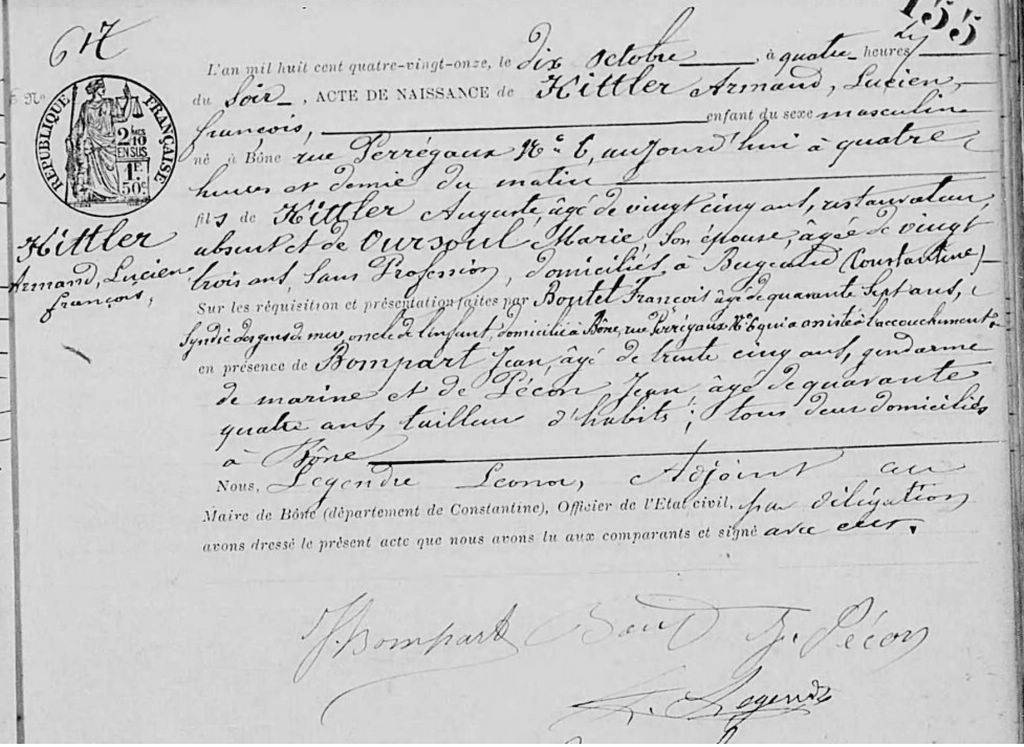 617
155
L'an mil huit cent quatre-vingt-onze, le dix octobre, à quatre heures
du soir, ACTE DE NAISSANCE de Hittler Armand, Lucien,
françois, enfant du sexe masculin
né à Bône rue Perrégaux N° 6, aujourd'hui à quatre
heures et demie du matin
fils de Hittler Auguste, âgé de vingt cinq ans, restaurateur,
absent et de Oursoul Marie, son épouse, âgée de vingt
trois ans, sans Profession, domiciliés à Bugeaud (Constantine)
Sur les réquisition et présentation faites par Boutet François âgé de quarante sept ans,
Syndic des gens de mer oncle de l'enfant, domicilié à Bône, rue Perrégaux N° 6 qui a assisté à l'accouchement
en présence de Bompart Jean, âgé de trente cinq ans, gendarme
de marine et de Pécon Jean âgé de quarante
quatre ans, tailleur d'habits; tous deux domiciliés
à Bône
Nous, Legendre Léonor, Adjoint au
Maire de Bône (département de Constantine), Officier de l'Etat civil, par délégation
avons dressé le présent acte que nous avons lu aux comparants et signé avec eux.
J. Bompart J. Pécon
L. Legendre
N°
RÉPUBLIQUE FRANÇAISE
2/10 EN SUS
1F 50c
Hittler
Armand, Lucien
françois,